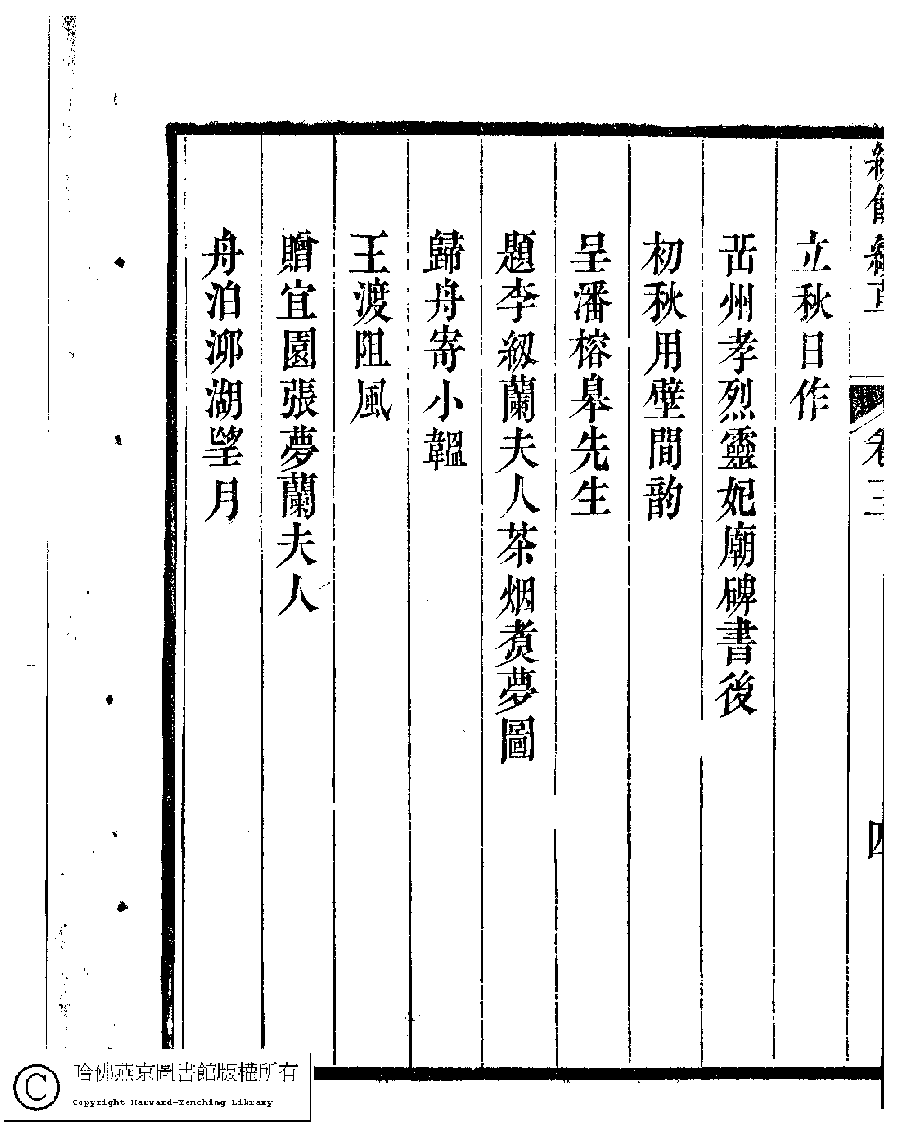 繡餘續草 卷三 四
立秋日作
岳州孝烈靈妃廟碑書後
初秋用壁間韵
呈潘榕皋先生
題李紉蘭夫人茶烟煑夢圖
歸舟寄小韞
王渡阻風
贈宜園張夢蘭夫人
舟泊泖湖望月
哈佛燕京圖書館版權所有
Copyright Harvard-Yenching Library